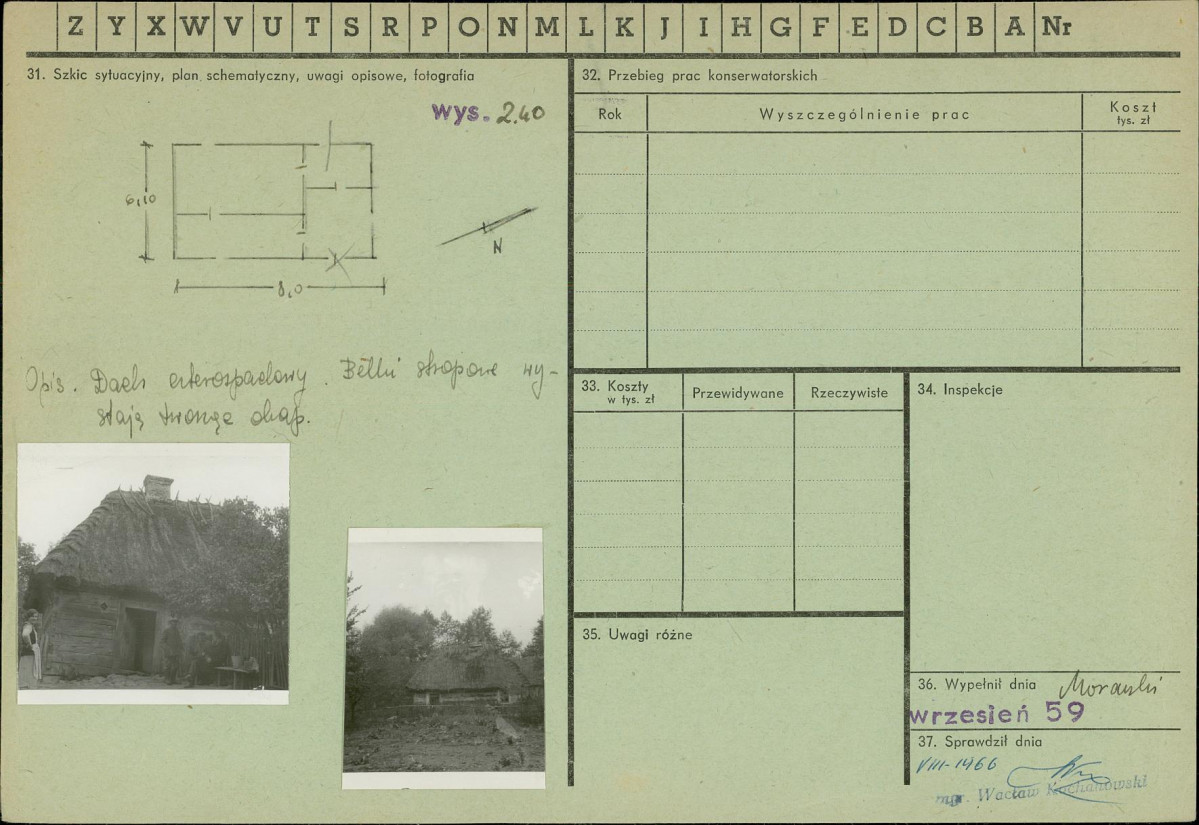 Z Y X W V U T S R P O N M L K J I H G F E D C B A Nr
31. Szkic sytuacyjny, plan schematyczny, uwagi opisowe, fotografia
wys. 2.40
6,10
8,0
N
Opis. Dach czterospadowy. Belki stropowe wy-
stają tworząc okap.
32. Przebieg prac konserwatorskich
Rok
Wyszczególnienie prac
Koszt
tys. zł
33. Koszty
w tys. zł
Przewidywane
Rzeczywiste
34. Inspekcje
35. Uwagi różne
36. Wypełnił dnia Morawski
wrzesień 59
37. Sprawdził dnia
VIII-1966
mgr. Wacław Kochanowski